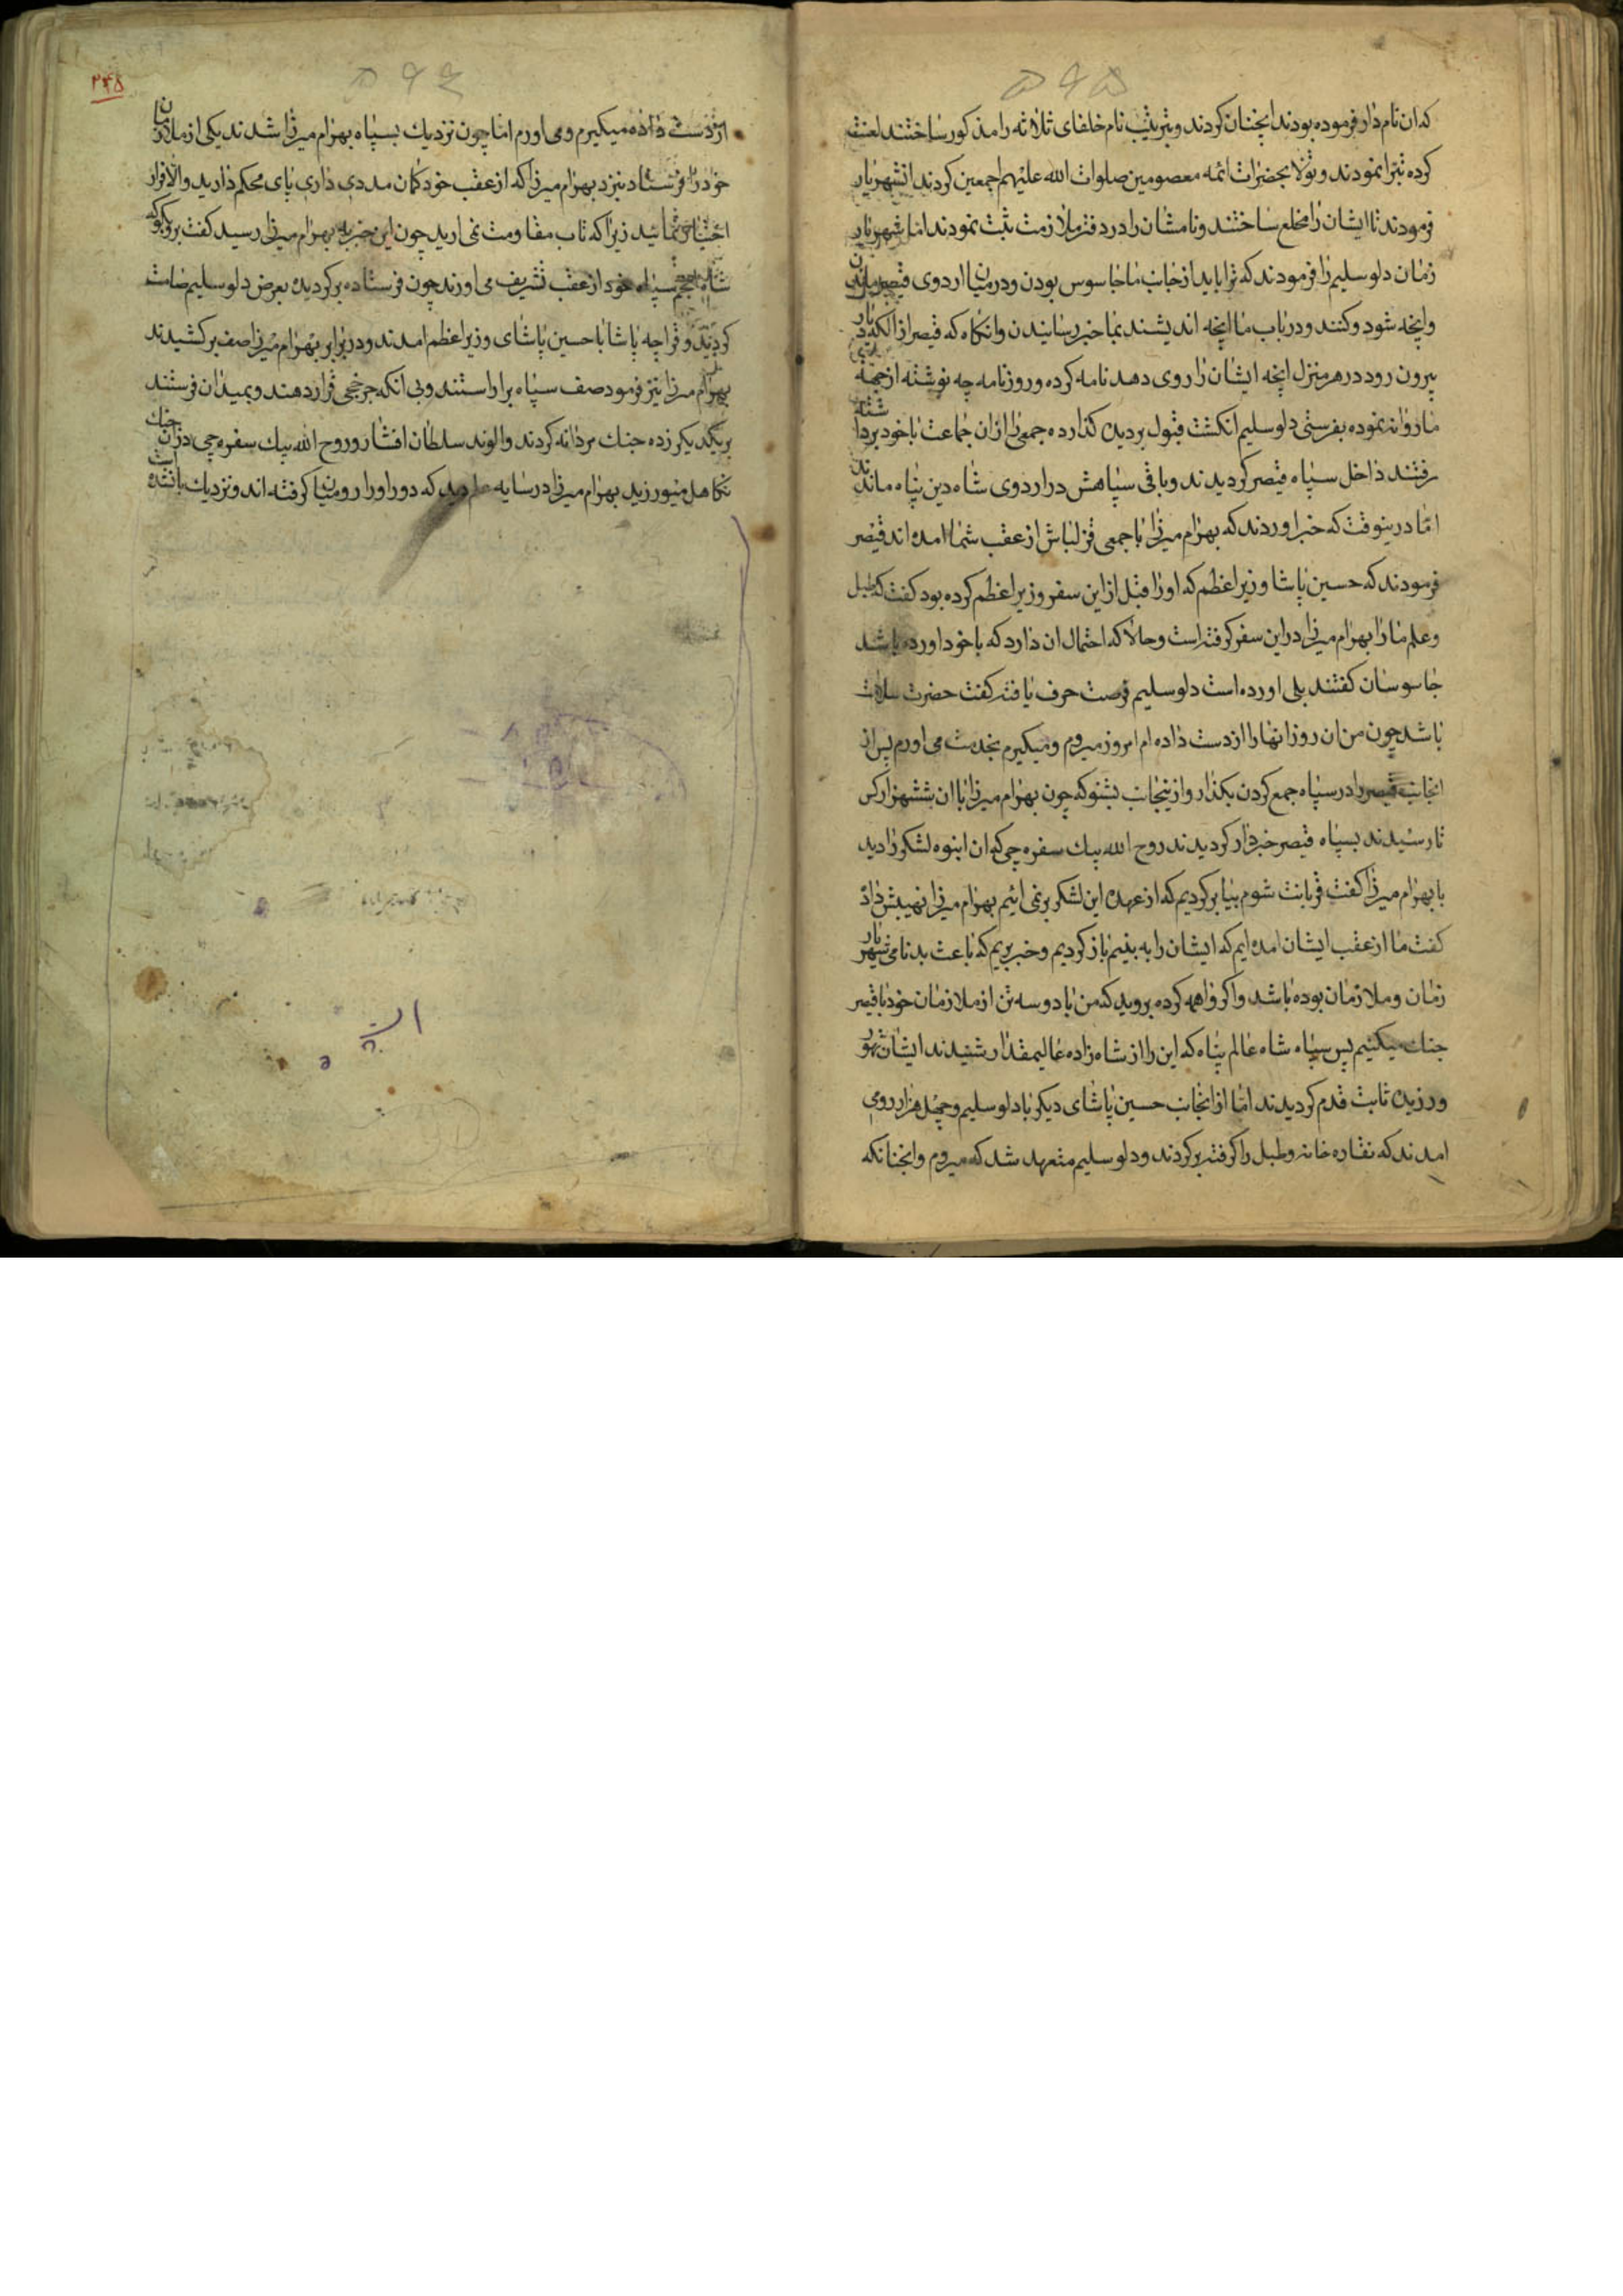 که ان نام دار فرموده بودند انچنان کردند و بترتیب نام خلفای ثلاثه را مذکور ساختند لعنت
کرده تبرا نمودند و تولا بحضرات ائمه معصومین صلوات الله علیهم اجمعین کردند انشهریار
فرمودند تا ایشان را مخلع ساختند و نامشان را در دفتر ملازمت ثبت نمودند اما شهریار
زمان دلو سلیم را فرمودند که ترا باید از جانب ما جاسوس بودن و در میان اردوی قیصر ماندن
و انچه شود و کنند و در باب ما انچه اندیشند بما خبر رسانیدن و انکاه که قیصر از الکه دیار
بیرون رود در هر منزل انچه ایشان را روی دهد نامه کرده و روزنامه چه نوشته از جهة
ما روانه نموده بفرستی دلو سلیم انکشت قبول بر دیده کذارده جمعی را ازان جماعت با خود برداشته
رفتند داخل سپاه قیصر کردیدند و باقی سپاهش در اردوی شاه دین پناه ماندند
اما درینوقت که خبر اوردند که بهرام میرزا با جمعی قزلباش از عقب شما امده اند قیصر
فرمودند که حسین پاشا وزیر اعظم که اورا قبل از این سفر وزیر اعظم کرده بود کفت که طبل
و علم مارا بهرام میرزا در این سفر کرفته است و حالا که احتمال ان دارد که با خود اورده باشد
جاسوسان کفتند بلی اورده است دلو سلیم فرصت حرف یافته کفت حضرت سلامت
باشد چون من ان روز انها را از دست داده ام امروز میروم و میکیرم بخدمت می اورم پس از
انجانب قیصر را در سپاه جمع کردن بکذار و ازینجانب بشنو که چون بهرام میرزا با ان ششهزار کس
تا رسیدند بسپاه قیصر خبردار کردیدند روح الله بیك سفره چی که ان انبوه لشکر را دید
با بهرام میرزا کفت قربانت شوم بیا برکردیم که از عهده این لشکر بر نمی ائیم بهرام میرزا نهیبش داد
کفت ما از عقب ایشان امده ایم که ایشان را به بینیم باز کردیم و خبر بریم که باعث بدنامی شهریار
زمان و ملازمان بوده باشد و اکر واهمه کرده بروید که من با دو سه تن از ملازمان خود با قیصر
جنك میکنیم پس سپاه شاه عالم پناه که این را از شاه زاده عالیمقدار شنیدند ایشان تهور
ورزیده ثابت قدم کردیدند اما از انجانب حسین پاشای دیکر با دلو سلیم و چهل هزار رومی
امدند که نقاره خانه و طبل را کرفته برکردند و دلو سلیم متعهد شد که میروم و انچنانکه
۲۴۸
از دست داده میکیرم و می اورم اما چون نزدیك بسپاه بهرام میرزا شدند یکی از ملازمان
خود را فرستاد بنزد بهرام میرزا که از عقب خود کمان مددی داری پای محکم دارید و الا فرار
اختیار نمائید زیرا که تاب مقاومت نمی ارید چون این خبر به بهرام میرزا رسید کفت برو بکو که
شاه انجم سپاه خود از عقب تشریف می اورند چون فرستاده بر کردیده بعرض دلو سلیم
کردید و قراچه پاشا با حسین پاشای وزیر اعظم امدند و در برابر بهرام میرزا صف بر کشیدند
بهرام میرزا نیز فرمود صف سپاه براراستند و بی انکه چرخچی قرار دهند و بمیدان فرستند
بر یکدیکر زده جنك مردانه کردند و الوند سلطان افشار و روح الله بیك سفره چی دران جنك
تکاهل میورزید بهرام میرزا در سایه علم دید که دور اورا رومیان کرفته اند و نزدیك بانشده است